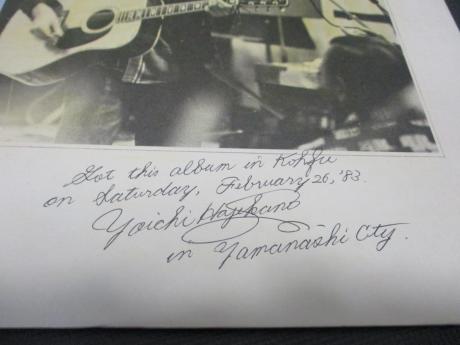 Got this album in Kohfu
on Saturday, February 26, '83.
Yoichi
in Yamanashi City.